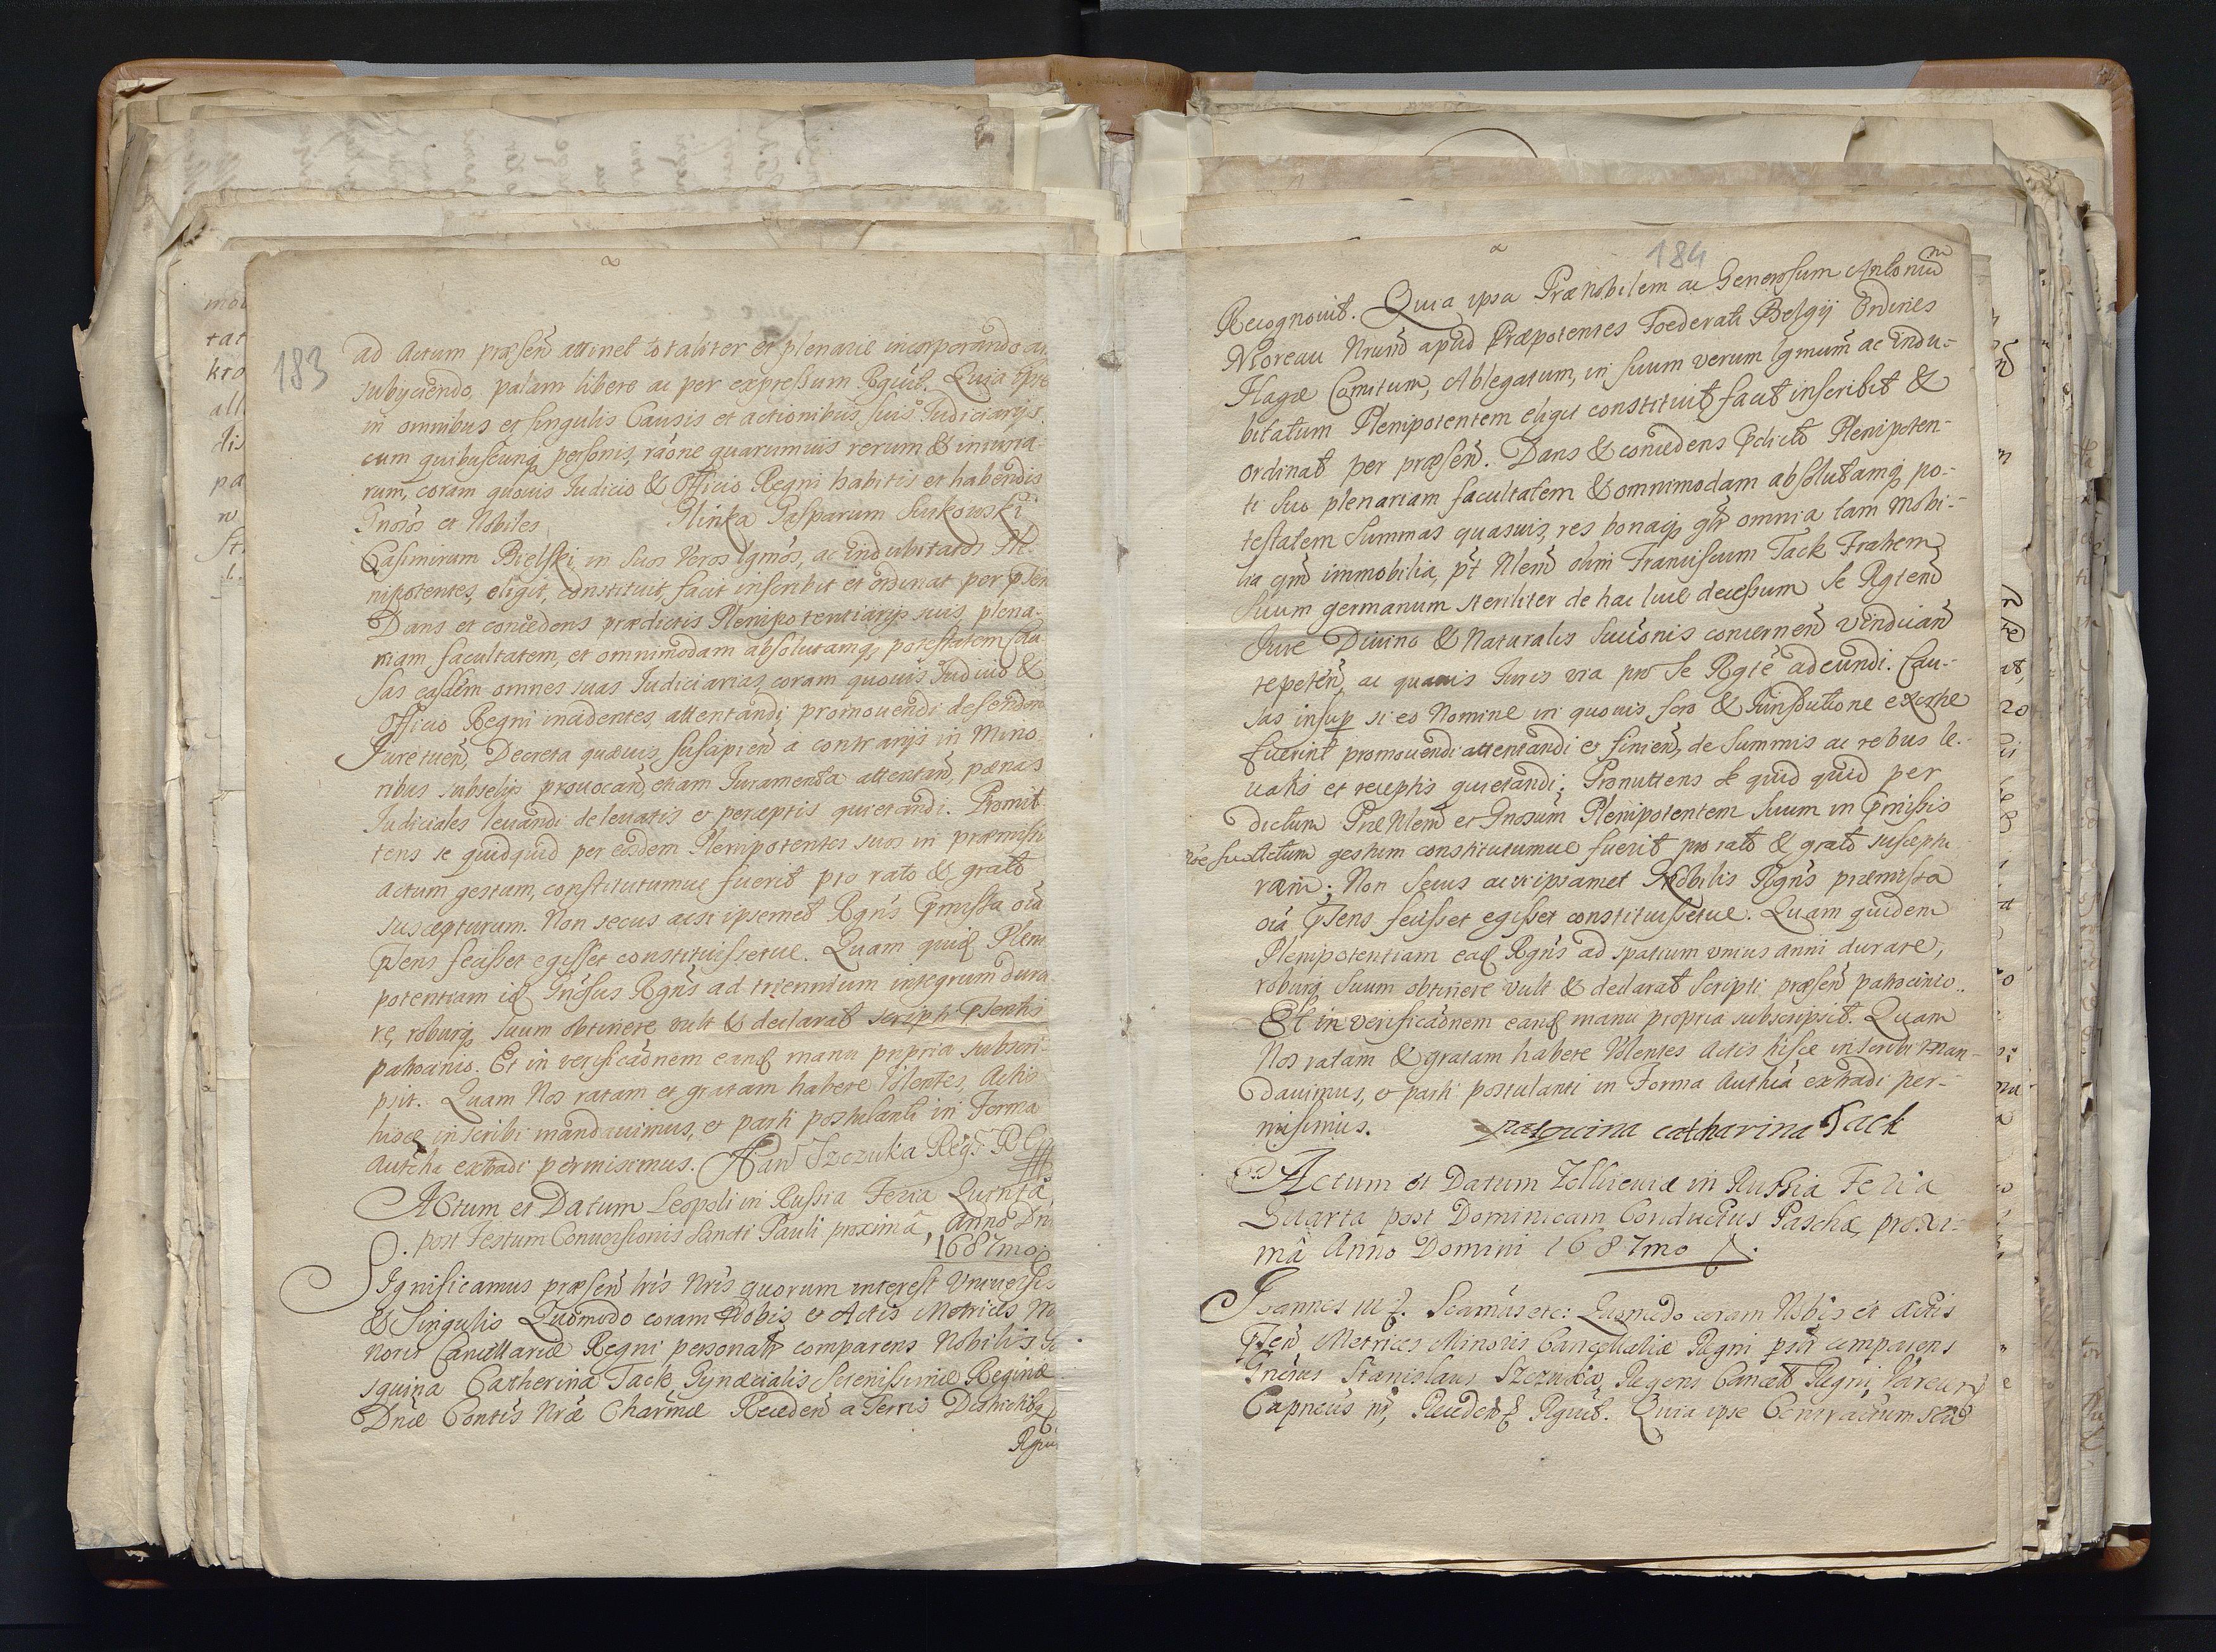 183
ad Actum præsen attinet totaliter et plenarie incorporando ac
subyciendo, palam libere ac per expressum Rgvit. Quia ipse
in omnibus et singulis Causis et actionibus suis Judiciarijs
cum quibuscunq personis, raõne quarumuis rerum & iniuria-
rum, coram quouis Judicio & Officio Regni habitis et habendis
Gnosos et Nobiles Glinka Gasparum Sutkowski
Casimirum Bielski, in suos veros lgmos, ac indubitatos Ple-
nipotentes, eligit, constituit, facit inscribit et ordinat per pñtem
Dans et concedens prædictis Plenipotentiarijs suis, plena-
riam facultatem, et omnimodam absolutamq, potestatem Cau-
sas easdem omnes suas Judiciarias, coram quouis Judicio &
Officio Regni incidentes, attentandi, promouendi defenden
Jure tuen, Decreta quæuis suscipien a contrarijs in Mino-
ribus Subselijs prouocand, etiam Juramenta attentand, pænas
Judiciales leuandi de leuatis et perceptis quietandi. Promit-
tens se quidquid per eosdem Plenipotentes suos in præmissis
actum gestum, constitutumue fuerit pro rato & grato
suscepturum. Non secus acsi ipsemet Rgns pmissa oiã
pñtens fecisset egisset constituissetue. Quam quid Pleni-
potentiam id Gnosus Rgns ad triennium integrum dura-
re, roburq suum obtinere vult & declarat scripti pñtentis
patrocinio. Et in verificãonem eand manu propria subscri-
psit. Quam Nos ratam et gratam habere Volentes, Actis
hisce inscribi mandauimus, et parti postulanti in Forma
autcha extradi permisimus. Szczuka Regs
Actum et Datum Leopoli in Russia Feria Quinta
post Festum Conuersionis Sancti Pauli proximã, Anno Dni
1687mo
Significamus præsen lris Nris quorum interest Vniuersis
& Singulis Quomodo coram Nobis et Actis Metrices Mi-
noris Cancellariæ Regni personalr comparens Nobilis
sguina Catherina Tack Gynæcialis Serenissimæ Reginæ
Dnæ Contis Nræ Charmæ Receden a Terris Districtibq
Rgvi
184
Recognouit. Quia ipsa Præ Nobilem ac Generosum Antoniu
Moreau Nrund apud Præpotentes Foederati Belgij Ordines
Hagæ Comitum, Ablegatum, in suum verum lgmum ac indu-
bitatum Plenipotentem eligit constituit facit inscribit &
ordinat per præsen. Dans & concedens pdicto Plenipoten-
ti suo plenariam facultatem & omnimodam absolutamq po-
testatem Summas quasuis, res bonaq glr omnia tam mobi-
lia qm immobilia, pt Nlem olim Franciscum Tack Fratrem
suum germanum steriliter de hac luce decessum se Rgtend
Jure Diuino & Naturalis Succionis concernen vindican
repeten, ac quauis Juris via pro se Rgte adeundi. Cau-
sas insup si eo Nomine in quouis foro & Jurisdictione exortæ
fuerint promouendi attentandi et finien, de Summis ac rebus le-
uatis et receptis quietandi; Promittens se quid quid per
dictum Præ Nlem et Gnosum Plenipotentem Suum in pmissis
actum gestum constitutumue fuerit pro rato & grato susceptu-
ram; Non Secus ac si ipsamet Nobilis Rgns præmissa
oiã pñtens fecisset egisset constituissetue. Quam quidem
Plenipotentiam ead Rgns ad spatium vnius anni durare,
roburq suum obtinere vult & declarat Scripti præsen patrocinio.
Et in verificãonem eand manu propria subscripsit. Quam
Nos ratam & gratam habere Volentes Actis hisce inscribi man-
dauimus, et parti postulanti in Forma Authca extradi per-
misimus. pasqvina catharina Tack
Actum et Datum Zolkieuiæ in Russia Feria
Quarta post Dominicam Conductus Paschæ, proxi-
mã Anno Domini 1687mo
Joannes III. Scamus etc: Quomodo coram Nobis et Actis
pñten Metrices Minoris Cancellariæ Regni pslr comparens
Gnosus Stanislaus Szczuka, Regens Canæll Regni,
Capneus Recedend Rgvit. Quia ipse Contractum seu